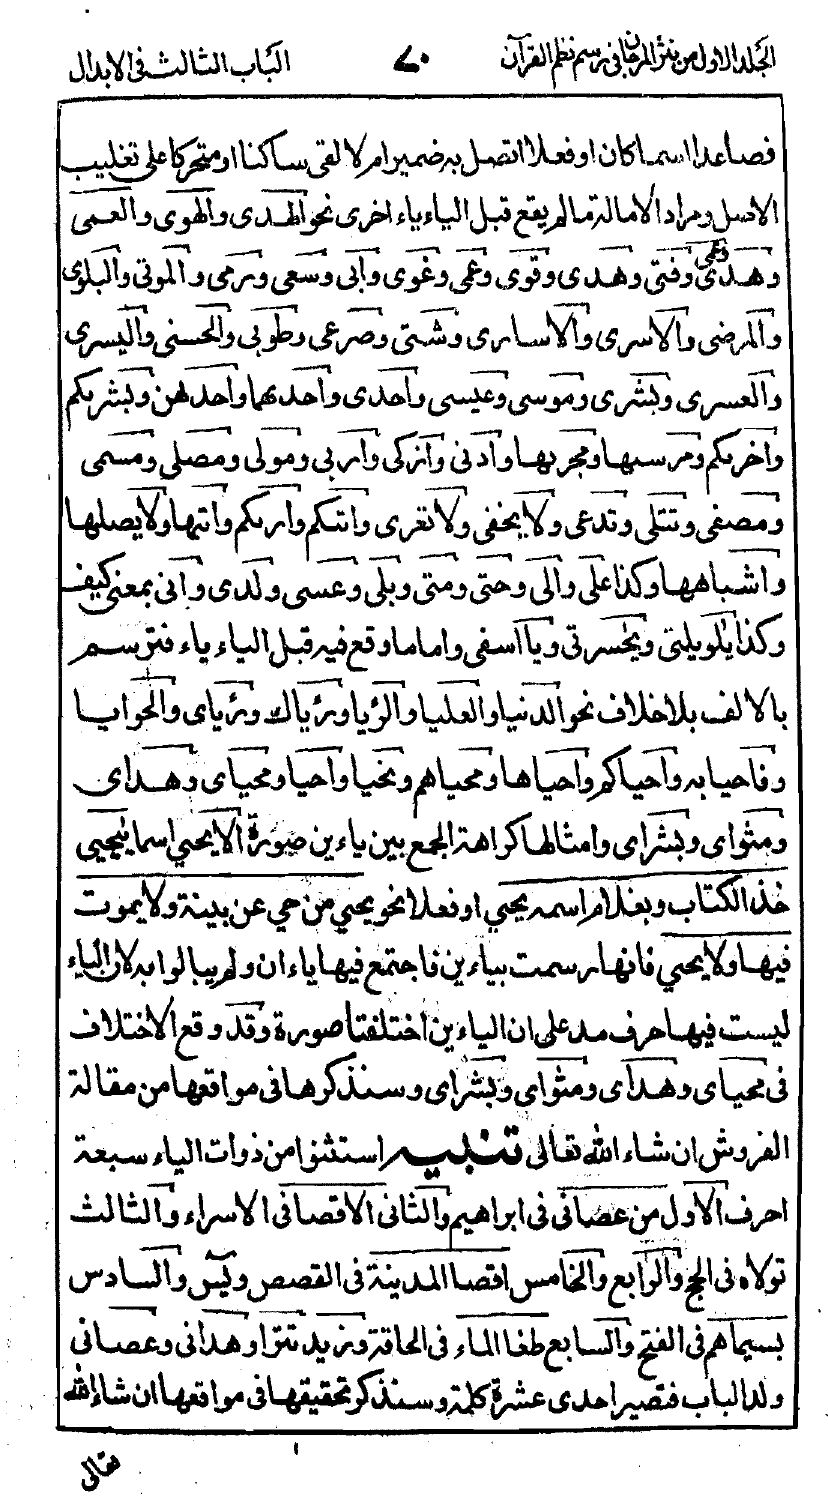 المجلد الاول من نثر المرجان في رسم نظم القرآن ٧٠ الباب الثالث في الابدال
فصاعدا اسما كان او فعلا اتصل به ضمير ام لا لقى ساكنا او متحركا على تغليب
الاصل ومراد الامالة ما لم يقع قبل الياء ياء اخرى نحو الهدى والهوى والعمى
وهدى وعمى وفتى وهدى وقوى وعمى وغوى وابى وسعى ورمى والموتى والبلوى
والمرضى والاسرى والاسارى وشتى وصرعى وطوبى والحسنى واليسرى
والعسرى وبشرى وموسى وعيسى واحدى واحدىهما واحدىهن وبشرىكم
واخرىكم ومرسىها ومجرىها وادنى وازكى واربى ومولى ومصلى ومسمى
ومصفى وتتلى وتدعى ولا يخفى ولا تعرى واتىكم وارىكم واتىها ولا يصلىها
واشباهها وكذا على والى وحتى ومتى وبلى وعسى ولدى وانى بمعنى كيف
وكذا يٰويلتى ويٰحسرتى ويا اسفى واما ما وقع فيه قبل الياء ياء فترسم
بالالف بلا خلاف نحو الدنيا والعليا والرؤيا ورؤياك ورؤياى والحوايا
وفاحيا به واحياكم واحياها ومحياهم ونحيا واحيا ومحياى وهداى
ومثواى وبشراى وامثالها كراهة الجمع بين ياءين صورة الا يحيي اسما يٰيحيي
خذ الكتاب وبغلام اسمه يحيي او فعلا نحو يحيي من حي عن بينة ولا يموت
فيها ولا يحيي فانها رسمت بياءين فاجتمع فيها ياءان ولم يبالوا به لان الياء
ليست فيها حرف مد على ان الياءين اختلفتا صورة وقد وقع الاختلاف
فى محياى وهداى ومثواى وبشراى وسنذكرها فى مواقعها من مقالة
الفروش ان شاء الله تعالى تنبيه استثنوا من ذوات الياء سبعة
احرف الاول من عصانى فى ابراهيم والثانى الاقصا فى الاسراء والثالث
تولاه فى الحج والرابع والخامس اقصا المدينة فى القصص ويٰس والسادس
بسيماهم فى الفتح والسابع طغا الماء فى الحاقة ونزيد تترا وهدانى وعصانى
ولدا الباب فتصير احدى عشرة كلمة وسنذكر تحقيقها فى مواقعها ان شاء الله
تعالى